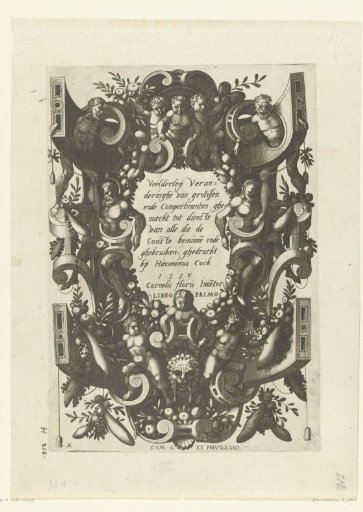 Veelderleij Veran=
deringhe van grotissen
ende Compertimenten ghe
maeckt tot dienste
van alle die de
Conste beminne ende
ghebruiken. ghedruckt
bij Hieronimus Cock
1556
Cornelis floris Invētor
·LIBRO PRIMO·
A
CVM G ET PRIVILEGIO·